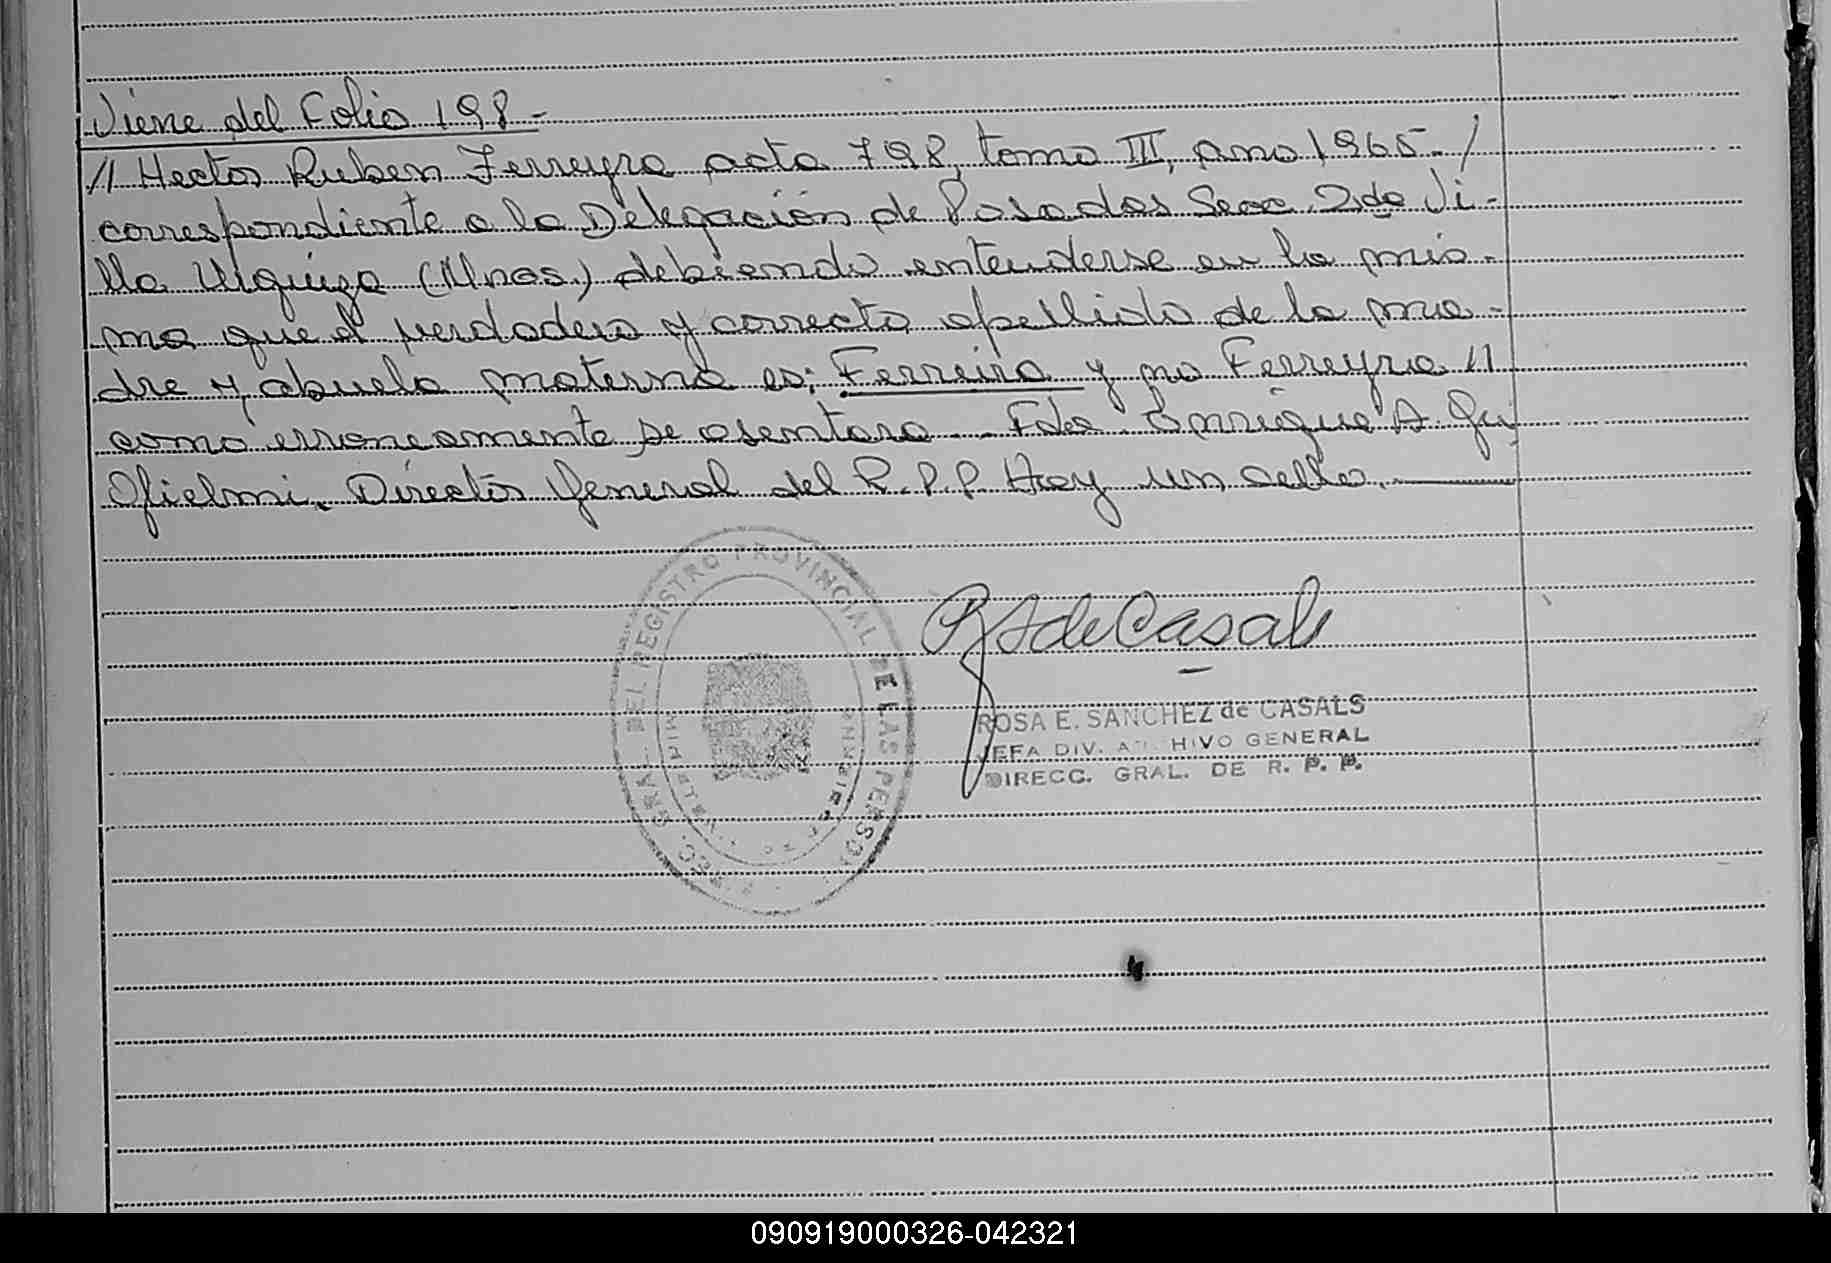 Viene del Folio 198-
// Hector Ruben Ferreyra acta 798, tomo III, ano 1965-/
correspondiente a la Delegación de Posadas Secc. 2da Vi-
lla Urquiza (Mnes.) debiendo entenderse en la mis-
ma que el verdadero y correcto apellido de la ma-
dre y abuela materna es: Ferreira y no Ferreyra //
como erroneamente se asentara - Fdo. Enrique A. Gu
glielmi, Director General del R.P.P. Hay un sello.
R S de Casals
ROSA E. SANCHEZ de CASALS
JEFA DIV. ARCHIVO GENERAL
DIRECC. GRAL. DE R. P. P.
DIREC. GRAL. DEL REGISTRO PROVINCIAL DE LAS PERSONAS
090919000326-042321